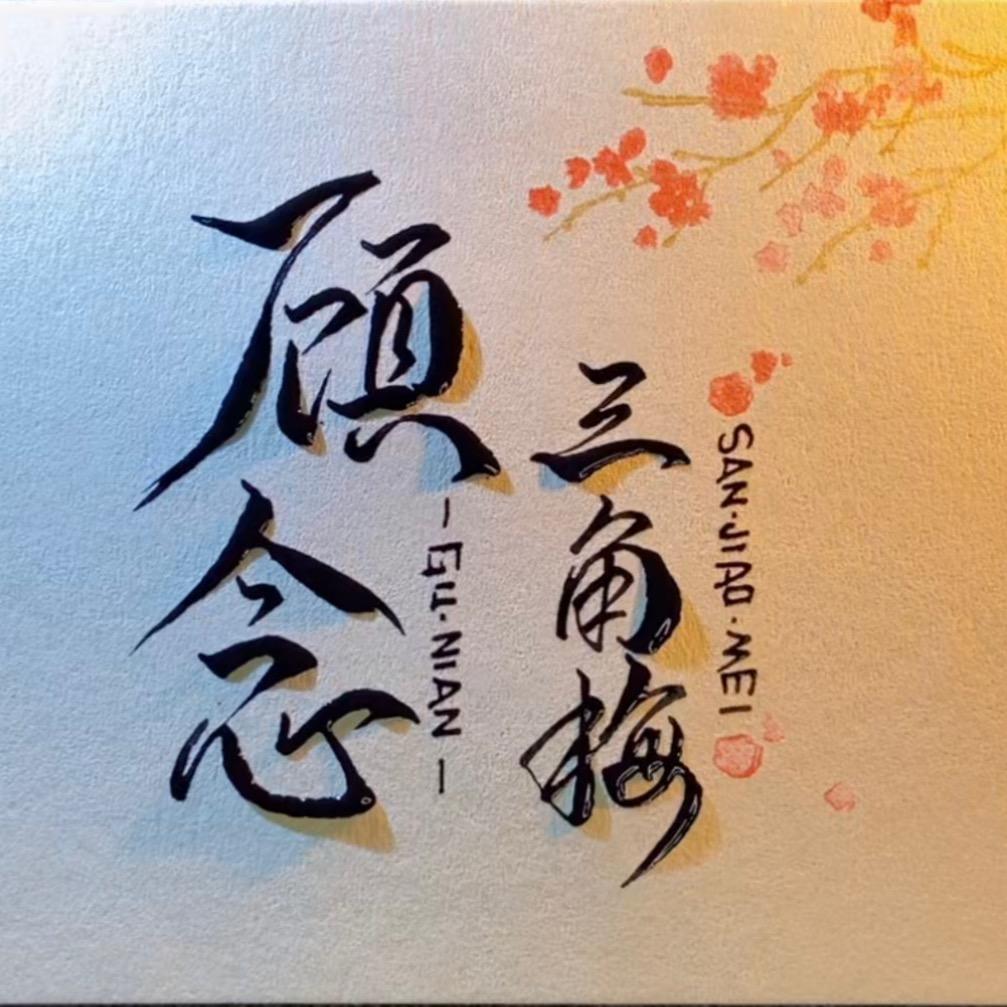 三角梅
SAN·JIAO·MEI
顾念
—GU·NIAN—